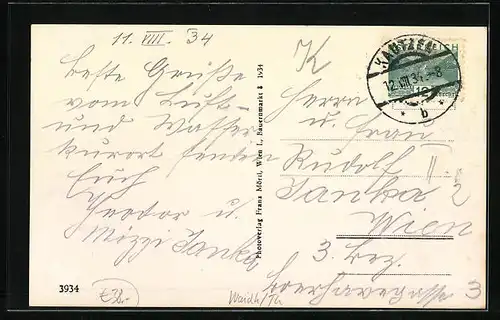 11. VIII. 34
Beste Grüße
vom Luft-
und Wasser
kurort senden
Euch
Theodor u.
Mizzi Janka
K
Herrn
u. Frau
Rudolf
Janka
Wien
3. Bez.
3
KAUTZEN
12.VIII.34-8
* b *
12
Photoverlag Franz Mörtl, Wien I., Bauernmarkt 3 1934
3934
Waidh/Th